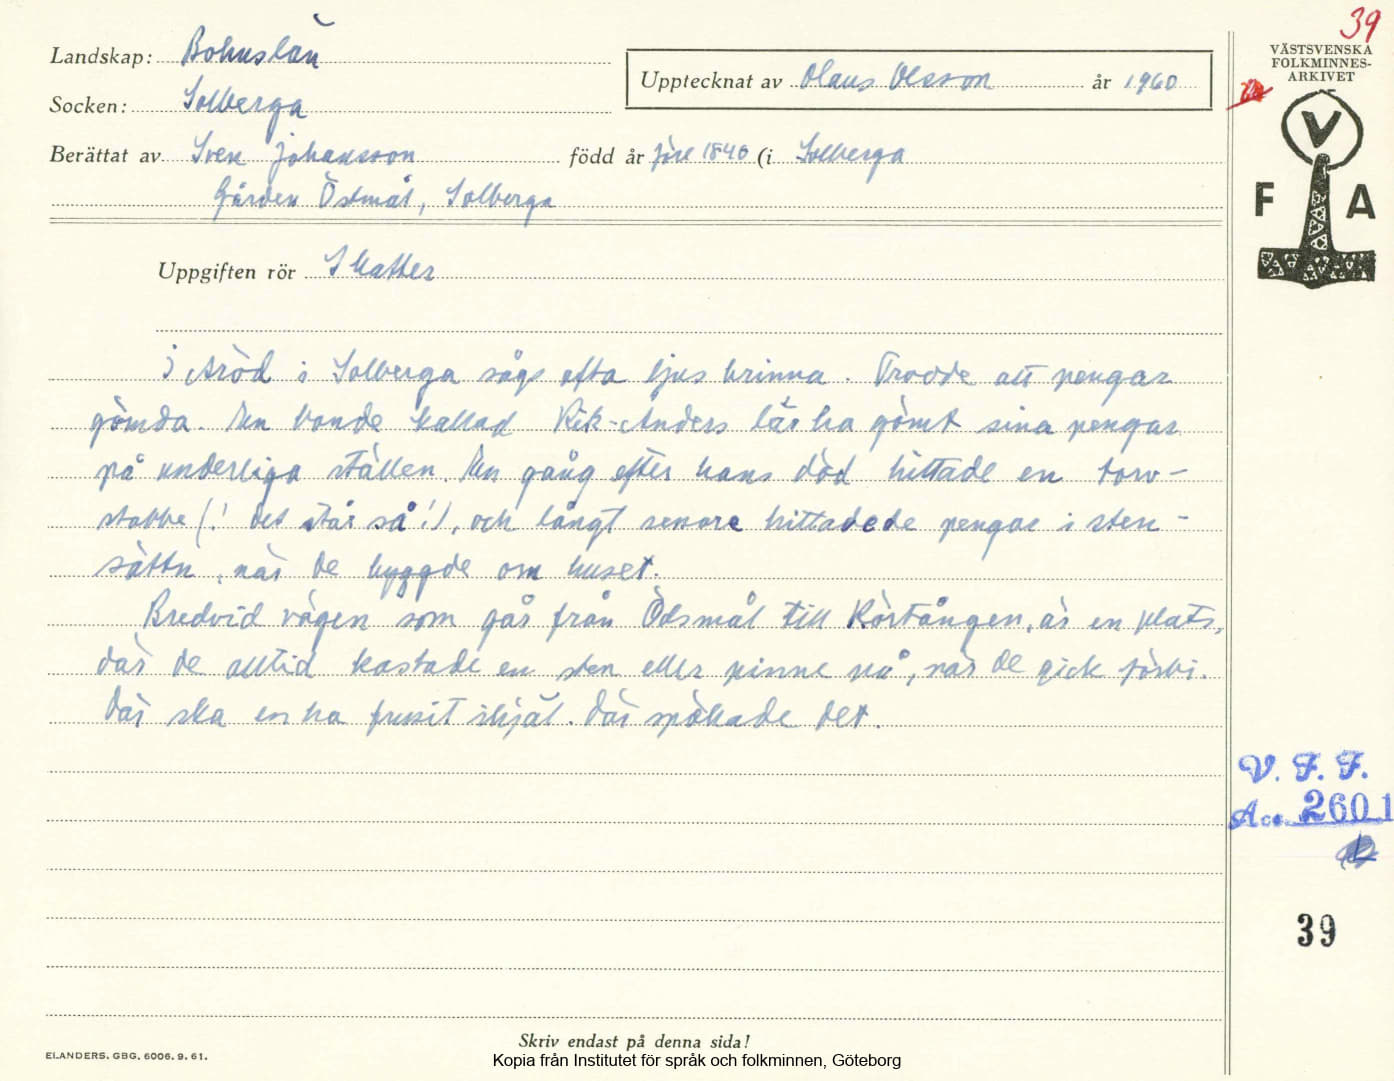 39
Landskap: Bohuslän
Socken: Solberga
Upptecknat av Olaus Olsson år 1960
Berättat av Sven Johansson född år före 1840 (i Solberga
Gården Ödsmål, Solberga
VÄSTSVENSKA
FOLKMINNES-
ARKIVET
V
F A
Uppgiften rör Skatter
I Aröd i Solberga sågs ofta ljus brinna. Trodde att pengar
gömda. En bonde kallad Rik-Anders lär ha gömt sina pengar
på underliga ställen. En gång efter hans död hittade en torv-
stabbe (! det står så!), och långt senare hittadede pengar i sten-
sättn, när de byggde om huset.
Bredvid vägen som går från Ödsmål till Rörtången, är en plats,
där de alltid kastade en sten eller pinne på, när de gick förbi.
Där ska en ha frusit ihjäl. Där spökade det.
V. F. F.
Acc. 2601
39
Skriv endast på denna sida!
ELANDERS. GBG. 6006. 9. 61.
Kopia från Institutet för språk och folkminnen, Göteborg